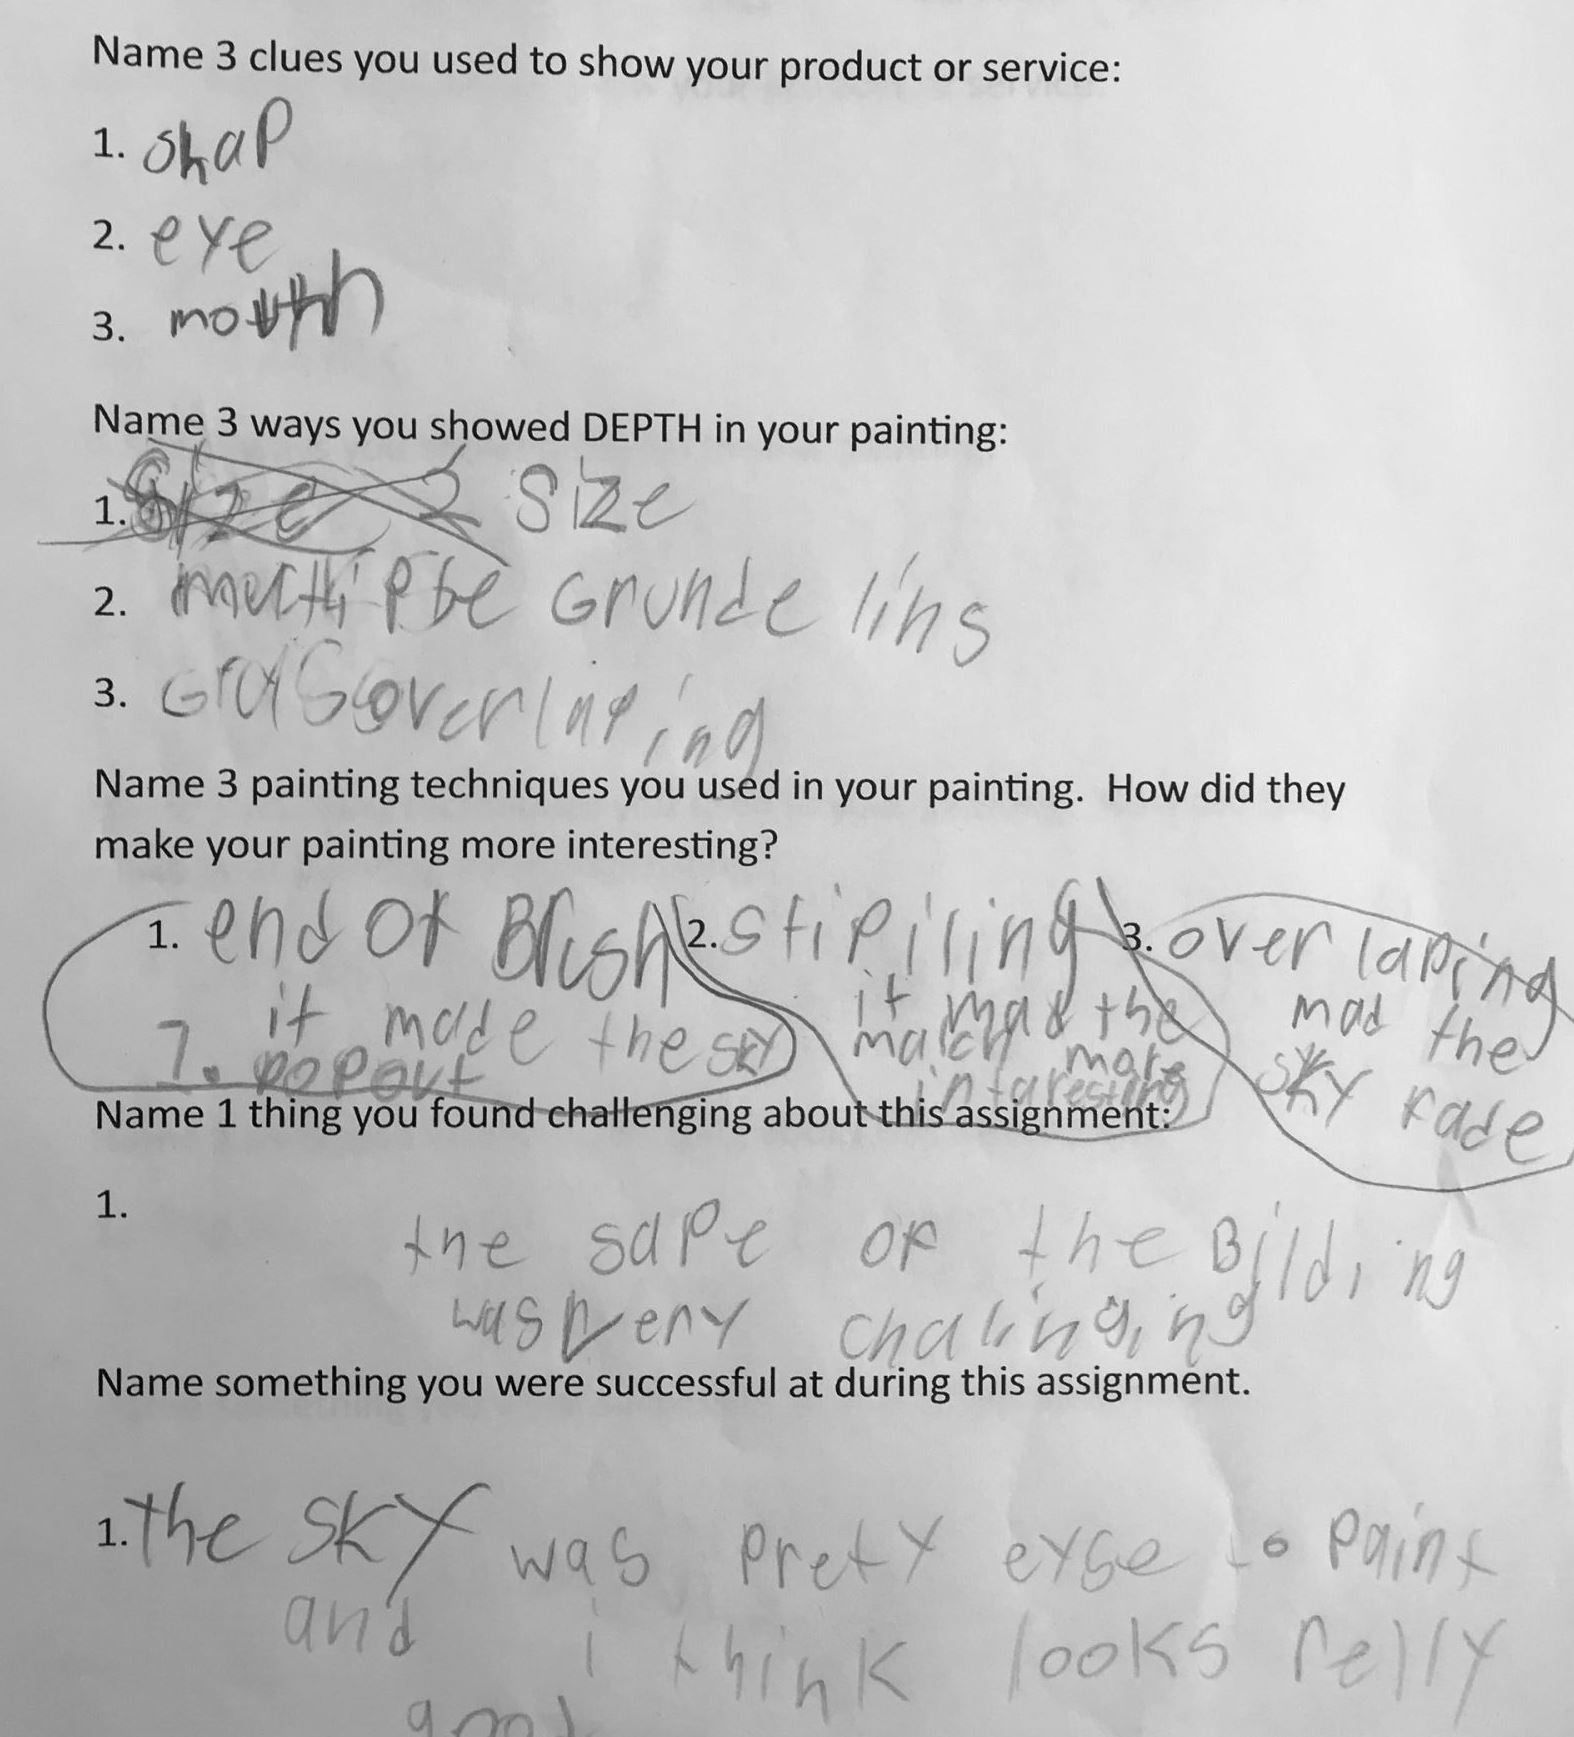 Name 3 clues you used to show your product or service:
1. shap
2. eye
3. mouth
Name 3 ways you showed DEPTH in your painting:
1. Size 2 Size
2. multiple Grunde lins
3. overlaping
Name 3 painting techniques you used in your painting. How did they
make your painting more interesting?
1. end of Brush
it made the sky
popout
2. stipiling
it mad the
match more
intaresting
3. over laping
mad the
sky fade
Name 1 thing you found challenging about this assignment:
1.
the sape of the Bilding
was very chalinging
Name something you were successful at during this assignment.
1. the sky was prety eyse to paint
and i think looks relly
good